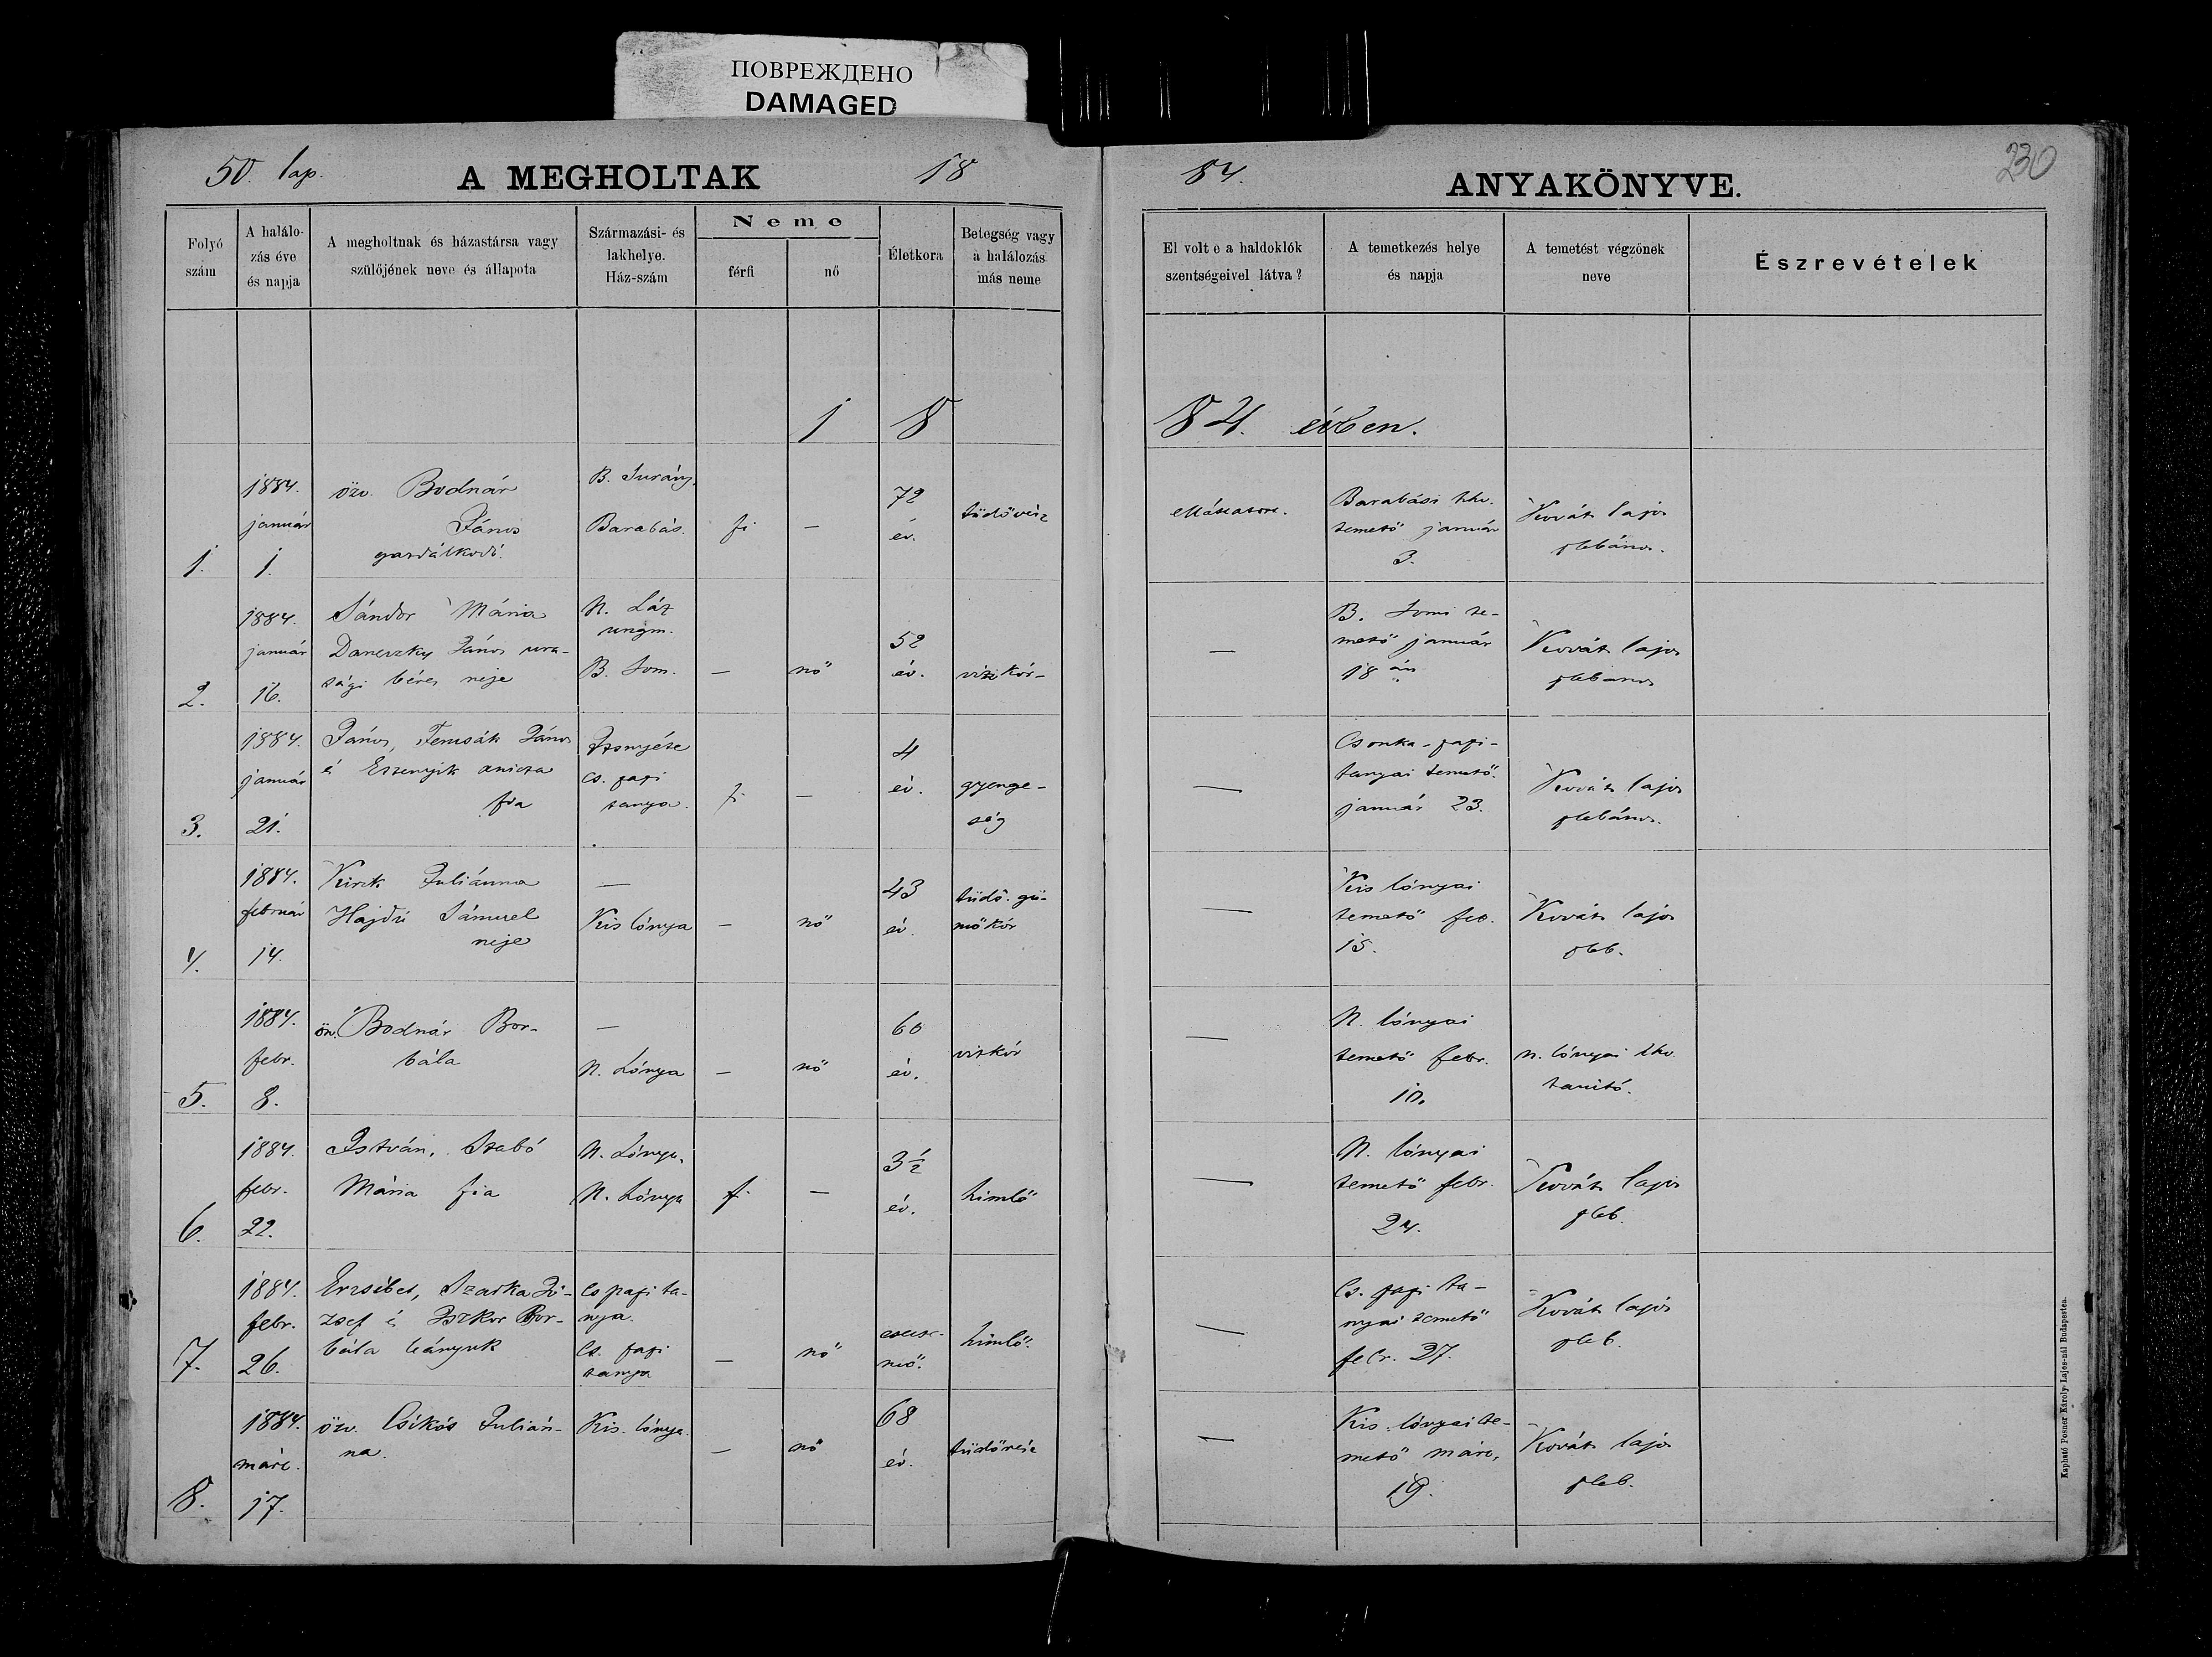 ПОВРЕЖДЕНО
DAMAGED
50. lap.
A MEGHOLTAK
18
84.
ANYAKÖNYVE.
230
Folyó szám
A halálozás éve és napja
A megholtnak és házastársa vagy szülőjének neve és állapota
Származási- és lakhelye. Ház-szám
Neme
férfi
nő
Életkora
Betegség vagy a halálozás más neme
El volt e a haldoklók szentségeivel látva?
A temetkezés helye és napja
A temetést végzőnek neve
Észrevételek
18
84. évben.
1.
1884. január 1.
özv. Bodnár
János
gazdálkodó.
B. Surány.
Barabás.
fi
—
72 év.
tüdővész
Barabási
temető január
3.
Kováts lajos
plebános.
2.
1884. január 16.
Sándor Mária
Daneczky János ura-
sági béres neje
N. Láz
ungm.
B. Som.
—
nő
52 év.
vizikór-
—
B. Somi te-
mető január
18 án
Kováts lajos
plebános
3.
1884. január 21.
János, Temsák János
é
fia
cs. papi
tanya.
fi
—
4 év.
gyenge-
ség
—
Csonka-papi-
tanyai temető.
január 23.
Kováts lajos
plebános.
4.
1884. február 14.
Juliánna
Hajdú Sámuel
neje
—
Kis lónya
—
nő
43 év.
tüdő-gü-
mőkór
—
Kis lónyai
temető feb.
15.
Kováts lajos
pleb.
5.
1884. febr. 8.
özv. Bodnár Bor-
bála
—
N. Lónya
—
nő
60 év.
vizkór
—
N. lónyai
temető febr.
10.
n. lónyai
tanitó.
6.
1884. febr. 22.
István, Szabó
Mária fia
N. Lónya.
N. Lónya
f.
—
3½ év.
himlő
—
N. lónyai
temető febr.
24.
Kováts lajos
pleb.
7.
1884. febr. 26.
Erzsébet, Szarka Jó-
zsef é Bor-
bála leányuk
Cs papi ta-
nya.
Cs. papi
tanya
—
nő
csecse-
mő.
himlő.
—
Cs. papi ta-
nyai temető
febr. 27.
Kováts lajos
pleb.
8.
1884. márc. 17.
özv. Csikós Julián-
na.
Kis-lónya.
—
nő
68 év.
tüdővész
—
Kis-lónyai te-
mető márc.
19.
Kováts lajos
pleb.
Kapható Posner Károly Lajos-nál Budapesten.